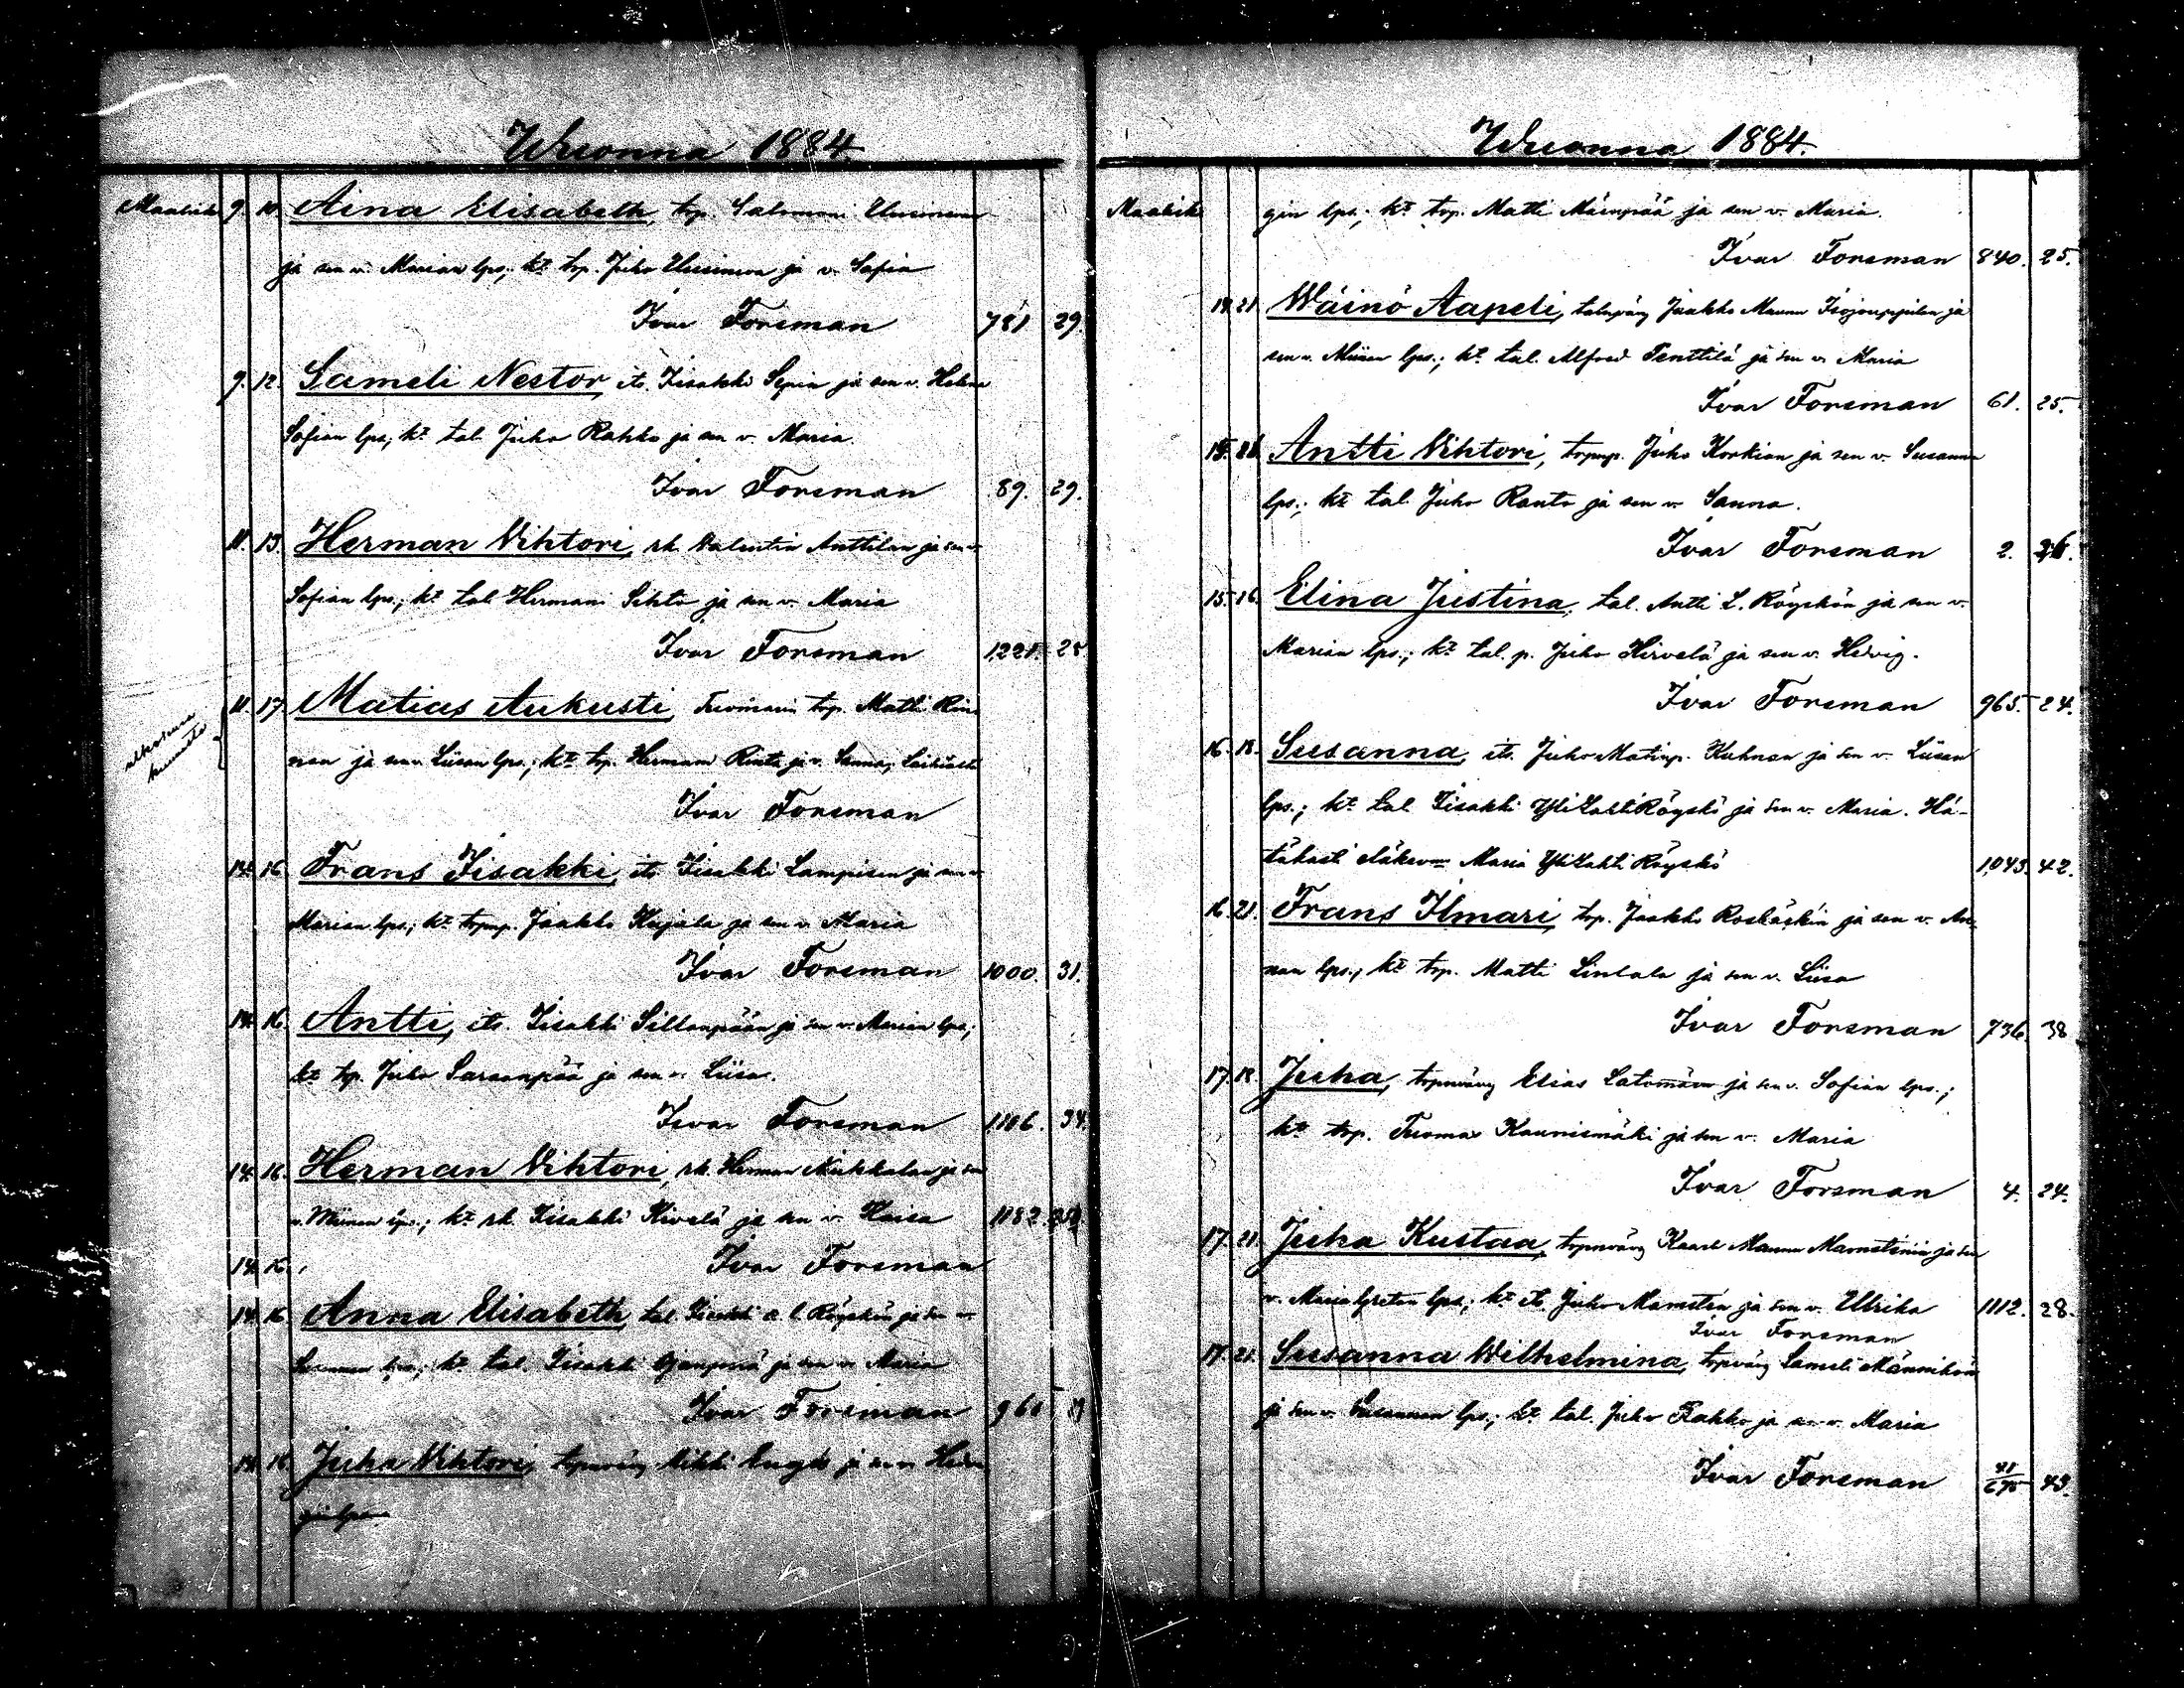 Wuonna 1884.
Maalisk 9 10 Aina Elisabeth, trp. Salomoni Uusimaan
ja sen v. Marian lps.; kt trp. Juho Uusimaa ja v. Sofia
Ivar Forsman 781 29.
9. 12. Sameli Nestor, its. Iisakki Sepin ja sen v. Helena
Sofian lps; kt tal. Juho Rahko ja sen v. Maria.
Ivar Forsman 89. 29.
11. 13. Herman Vihtori, rk. Valentin Anttilan ja sen v.
Sofian lps.; kt tal. Hermani Sihto ja sen v. Maria
Ivar Forsman 1,221. 28
11. 17. Matias Aukusti, trp. Matti
ja sen v. Liisan lps.; kt trp. Hermani Rinta ja v. Sanna,
ulkoseura
kunnasta
Ivar Forsman
14. 16. Frans Iisakki, its. Iisakki Lampisen ja sen v.
Marian lps.; kt trpnp. Jaakko Kujala ja sen v. Maria
Ivar Forsman 1000. 31.
14. 16. Antti, its. Iisakki Sillanpään ja sen v. Marian lps;
kt trp. Juho Sarsanpää ja sen v. Liisa.
Ivar Forsman 1106. 34.
14. 16. Herman Vihtori, rk. Herman Niukkalan ja sen
v. Miinan lps.; kt rk. Iisakki Kivelä ja sen v. Kaisa 1182.
14. 16. Ivar Forsman
14. 16. Anna Elisabeth, tal. Iisakki a. l. Röyskön ja sen v.
lps.; kt tal. Iisakki Ojanperä ja sen v. Maria
Ivar Forsman
14. 16. Juha Vihtori, trpnväng ja sen v. Hedvi
gin lps
Wuonna 1884.
Maalisk gin lps.; kt trp. Matti Mäenpää ja sen v. Maria.
Ivar Forsman 840. 25.
14. 21. Wäinö Aapeli, talnpväng Jaakko Maunu Isojauppilan ja
sen v. Miinan lps.; kt tal. Alfred Penttilä ja sen v. Maria
Ivar Forsman 61. 25.
15. 21. Antti Vihtori, trpnp. Juho Korkian ja sen v. Susanna
lps.; kt tal. Juho Ranto ja sen v. Sanna.
Ivar Forsman 2. 26.
15. 16. Elina Justina, tal. Antti L. Röyskön ja sen v.
Marian lps.; kt tal. p. Juho Hirvelä ja sen v. Hedvig.
Ivar Forsman 965. 24.
16. 18. Susanna, its. Juho Matinp. Kuhnan ja sen v. Liisan
lps.; kt tal. Iisakki YliLahtiRöyskö ja sen v. Maria. Hä-
täkasti eläkevmo Maria YliLahti Röyskö 1,043. 42.
16. 21. Frans Ilmari, trp. Jaakko Roskäskin ja sen v. An-
nan lps.; kt trp. Matti Lintala ja sen v. Liisa
Ivar Forsman 736. 38
17. 18. Juha, trpnväng Elias Latomäen ja sen v. Sofian lps.;
kt trp. Tuomas Kaunismäki ja sen v. Maria
Ivar Forsman 4. 24.
17. 21. Juha Kustaa, trpnväng Kaarl Maunu Mamstenin ja sen
v. Maria Gretan lps.; kt its. Juho Mamstén ja sen v. Ulrika 1112. 28.
Ivar Forsman
17. 21. Susanna Wilhelmina, trpväng Sameli Männikön
ja sen v. Susannan lps.; kt tal. Juho Rahko ja sen v. Maria
Ivar Forsman 43.